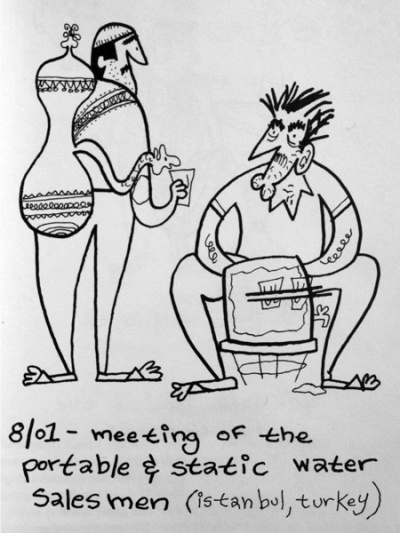 8/01 - meeting of the
portable & static water
Salesmen (istanbul, turkey)